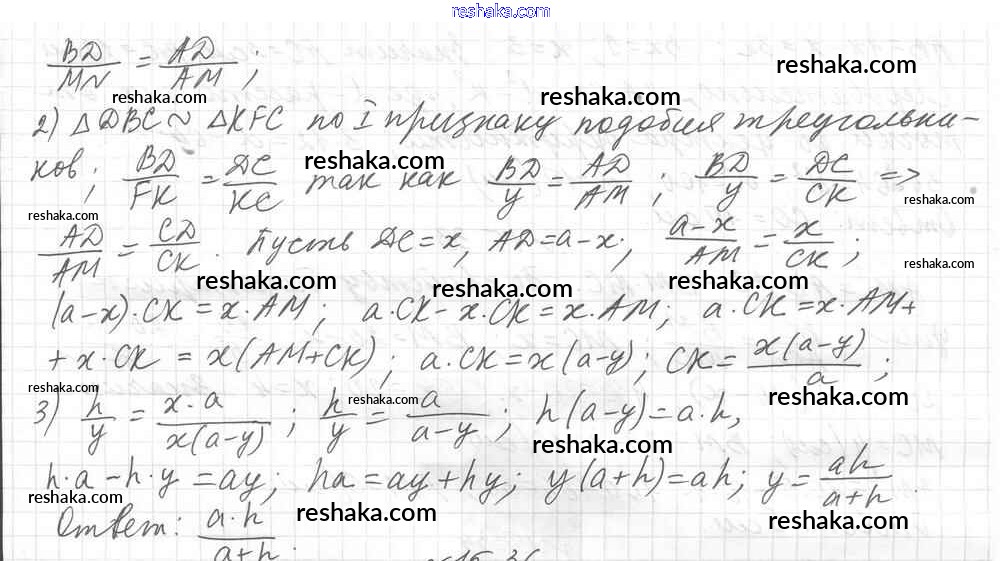 reshaka.com
BD/MN = AD/AM;
reshaka.com
reshaka.com
reshaka.com
2) △DBC ~ △KFC по I признаку подобия треугольни-
reshaka.com
ков; BD/FK = DC/KC так как BD/y = AD/AM; BD/y = DC/CK =>
reshaka.com
reshaka.com
reshaka.com
AD/AM = CD/CK. Пусть DC = x, AD = a-x; (a-x)/AM = x/CK;
reshaka.com
reshaka.com
reshaka.com
reshaka.com
(a-x)·CK = x·AM; a·CK - x·CK = x·AM; a·CK = x·AM+
+ x·CK = x(AM+CK); a·CK = x(a-y); CK = x(a-y)/a;
reshaka.com
reshaka.com
reshaka.com
3) h/y = x·a/x(a-y); h/y = a/(a-y); h(a-y) = a·h,
reshaka.com
h·a - h·y = ay; ha = ay + hy; y(a+h) = ah; y = ah/(a+h)
reshaka.com
reshaka.com
reshaka.com
Ответ: a·h/(a+h).